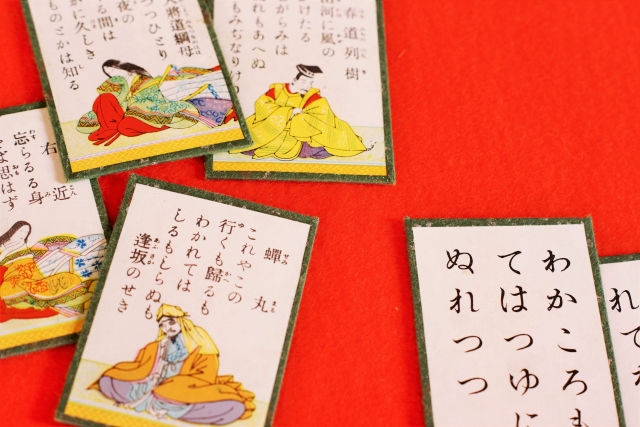 大將道綱母
つひとり
夜の
る間は
かに久しき
ものとかは知る
春道列樹
河に風の
けたる
がらみは
れもあへぬ
もみぢなりけ
右近
忘らるる身
ば思はず
蟬丸
これやこの
行くも歸るも
わかれては
しるもしらぬも
逢坂のせき
わかころも
てはつゆに
ぬれつつ
れて